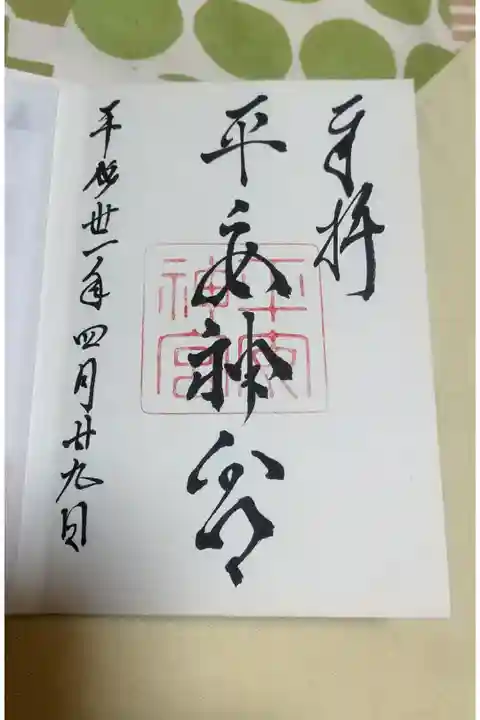 奉拝
平安神宮
平安神宮
平成卅一年四月廿九日